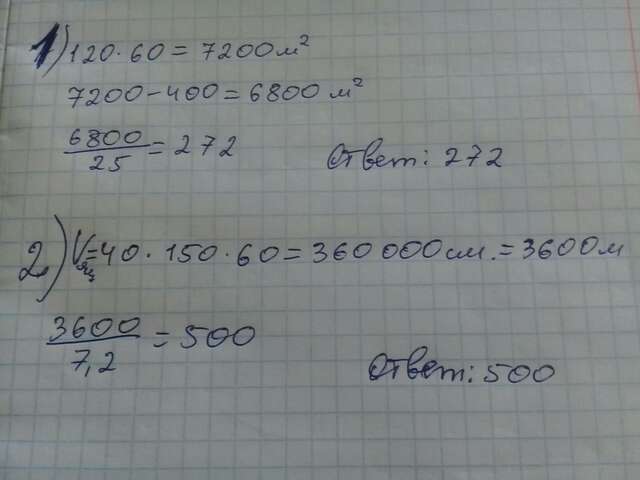 1) 120 · 60 = 7200 м²
7200 - 400 = 6800 м²
6800/25 = 272 Ответ: 272
2) Vящ = 40 · 150 · 60 = 360 000 см. = 3600 м
3600/7,2 = 500 Ответ: 500